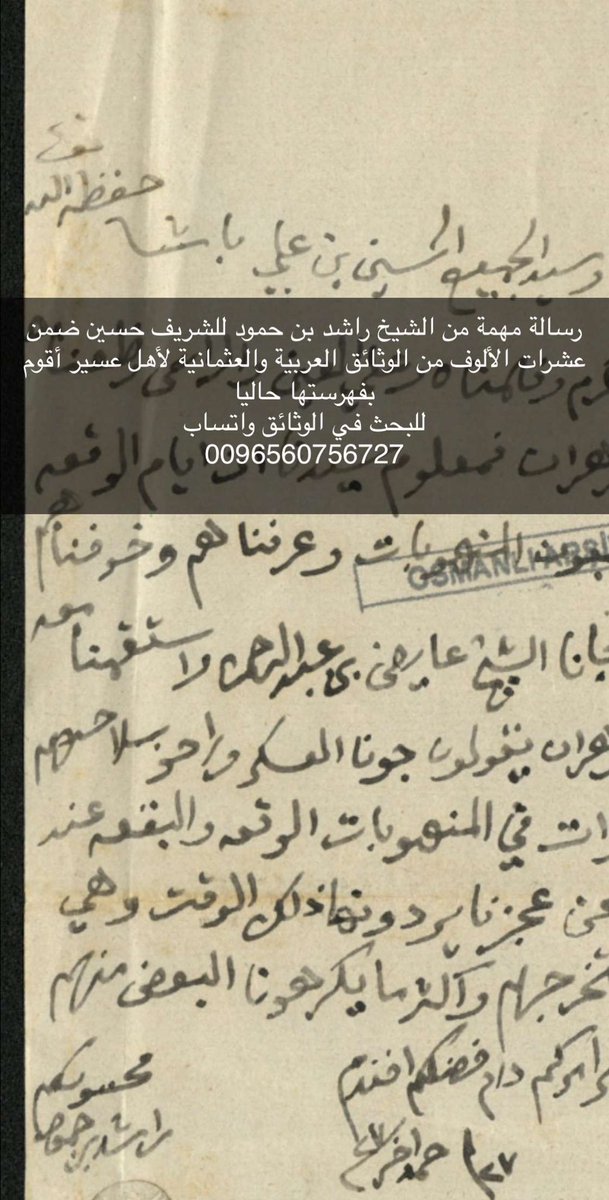 حفظه الله
وسيد الجميع الحسين بن علي باشا
رسالة مهمة من الشيخ راشد بن حمود للشريف حسين ضمن
عشرات الألوف من الوثائق العربية والعثمانية لأهل عسير أقوم
بفهرستها حاليا
للبحث في الوثائق واتساب
0096560756727
زهران فمعلوم ايام الوقعه
المنهوبات وعرفناهم وخوفناهم
OSMANLI ARŞİ
جانا الشيخ عايض بن عبدالرحمن واستقمنا معه
زهران يقولون جونا العسكر وراحو بسلاحهم
في المنهوبات الوقعه والبقعه عند
عجزنا يردونها ذلك الوقت وهي
نخرجهم واكثر ما يكرهونا البعض منهم
دام فضلكم افندم
محسوبكم
راشد بن حمود
٢٧